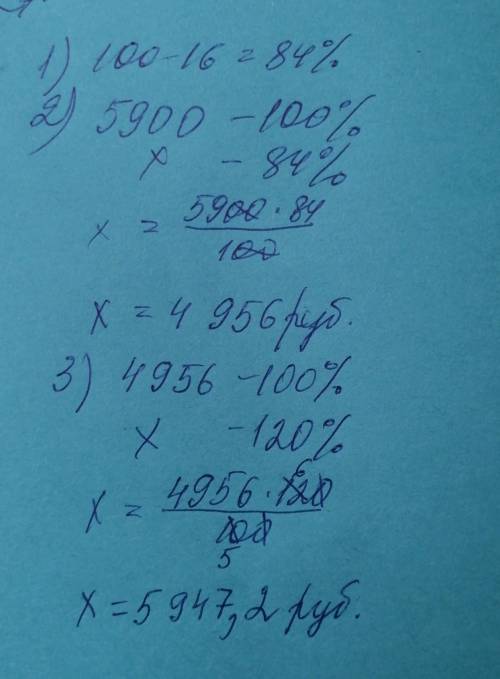 1) 100-16=84%
2) 5900 - 100%
x - 84%
x = 5900·84
100
x = 4 956 руб.
3) 4956 - 100%
x - 120%
6
x = 4956·120
100
5
x = 5 947,2 руб.